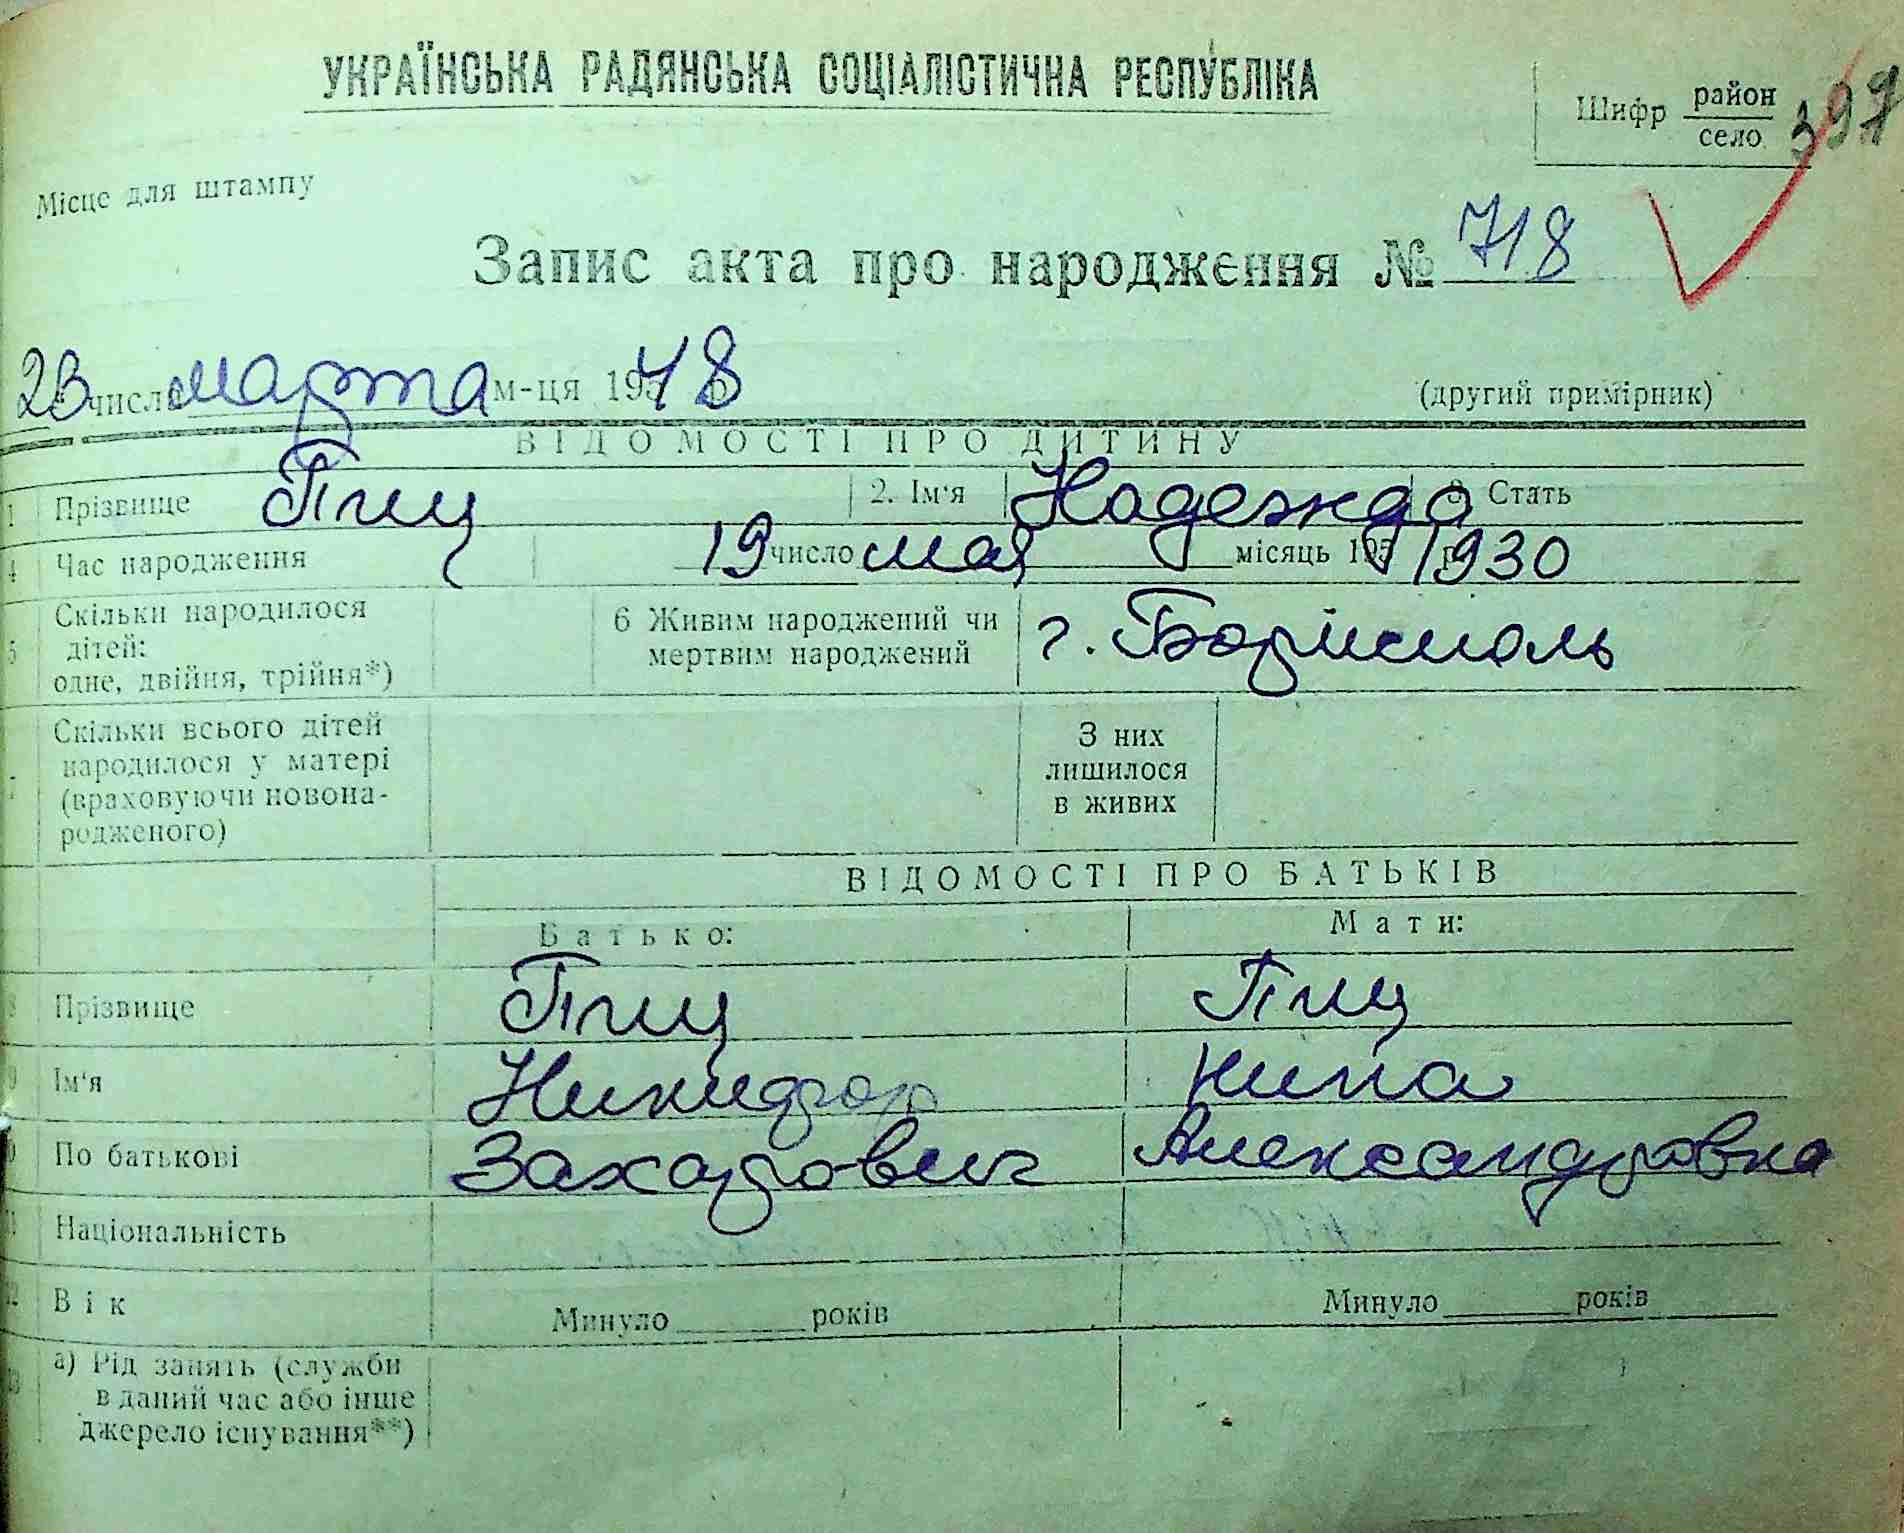 УКРАЇНСЬКА РАДЯНСЬКА СОЦІАЛІСТИЧНА РЕСПУБЛІКА
Шифр район
село
397
Місце для штампу
Запис акта про народження № 718
23 число марта м-ця 195 48 р
(другий примірник)
ВІДОМОСТІ ПРО ДИТИНУ
1 Прізвище Пищ 2. Ім'я Надежда 3. Стать
4 Час народження 19 число мая місяць 195 1930
5 Скільки народилося дітей: одне, двійня, трійня*) 6 Живим народжений чи мертвим народжений г. Борисполь
Скільки всього дітей народилося у матері (враховуючи новона-родженого) З них лишилося в живих
ВІДОМОСТІ ПРО БАТЬКІВ
Батько: Мати:
8 Прізвище Пищ Пищ
9 Ім'я Никифор Нина
По батькові Захарович Александровна
Національність
12 Вік Минуло років Минуло років
а) Рід занять (служби
в даний час або інше
джерело існування**)